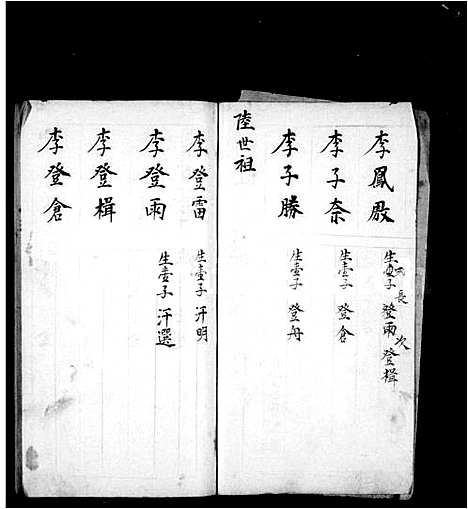 李鳳殿 生貳子 長 登雨 次 登楫
李子奈 生壹子 登倉
李子勝 生壹子 登舟
陸世祖
李登雷 生壹子 汗明
李登雨 生壹子 汗選
李登楫
李登倉